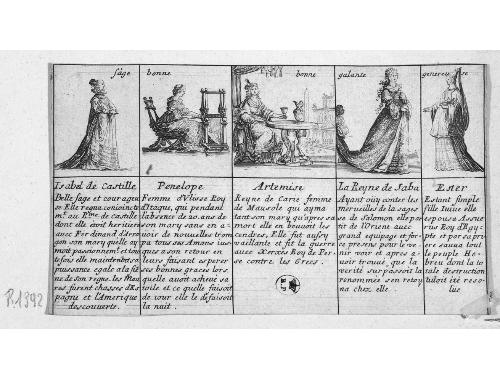 sage
bonne
bonne
galante
genereuse
Isabel de Castille
Belle sage et courageu
se Elle regna conioincte
mt. au Rme. de castille
dont elle étoit heritiere
avec Ferdinand d'Arra
gon son mary quelle ay
moit passionnemt. et tou
tefois elle maintenoit sa
puissance egale a la siē
ne de son regne. les Mau
res furent chassés d'Es
pagne et l'Amerique
descouverte.
Penelope
Femme d'Vlisse Roy
d'Itaque, qui pendant
l'absence de 20. ans de
son mary sans en a=
uoir de nouvelles trom
pa tous ses Amans ius
ques a son retour en
leurs faisant esperer
ses bonnes graces lors
quelle auroit achevé sa
toile et ce quelle faisoit
de iour elle le defaisoit
la nuit.
Artemise
Reyne de Carie femme
de Mausole qui ayma
tant son mary qu'apres sa
mort elle en beuvoit les
cendres, Elle fut aussy
vaillante et fit la guerre
avec Xerxés Roy de Per
se contre les Grecs.
La Reyne de Saba
Ayant ouy conter les
merveilles de la sages
se de Salomon elle par
tit de l'Orient avec
grand equipage et for
ce presens pour le ve
nir voir et apres a=
voir trouvé, que la
verité surpassoit la
renommée s'en retour
na chez elle.
Ester
Estant simple
fille Iuiue elle
espousa Assue
rus Roy d'Egy
pte et par sa prie
re sauua tout
le peuple He=
breu dont la to
tale destruction
estoit reso
lue
R.1392